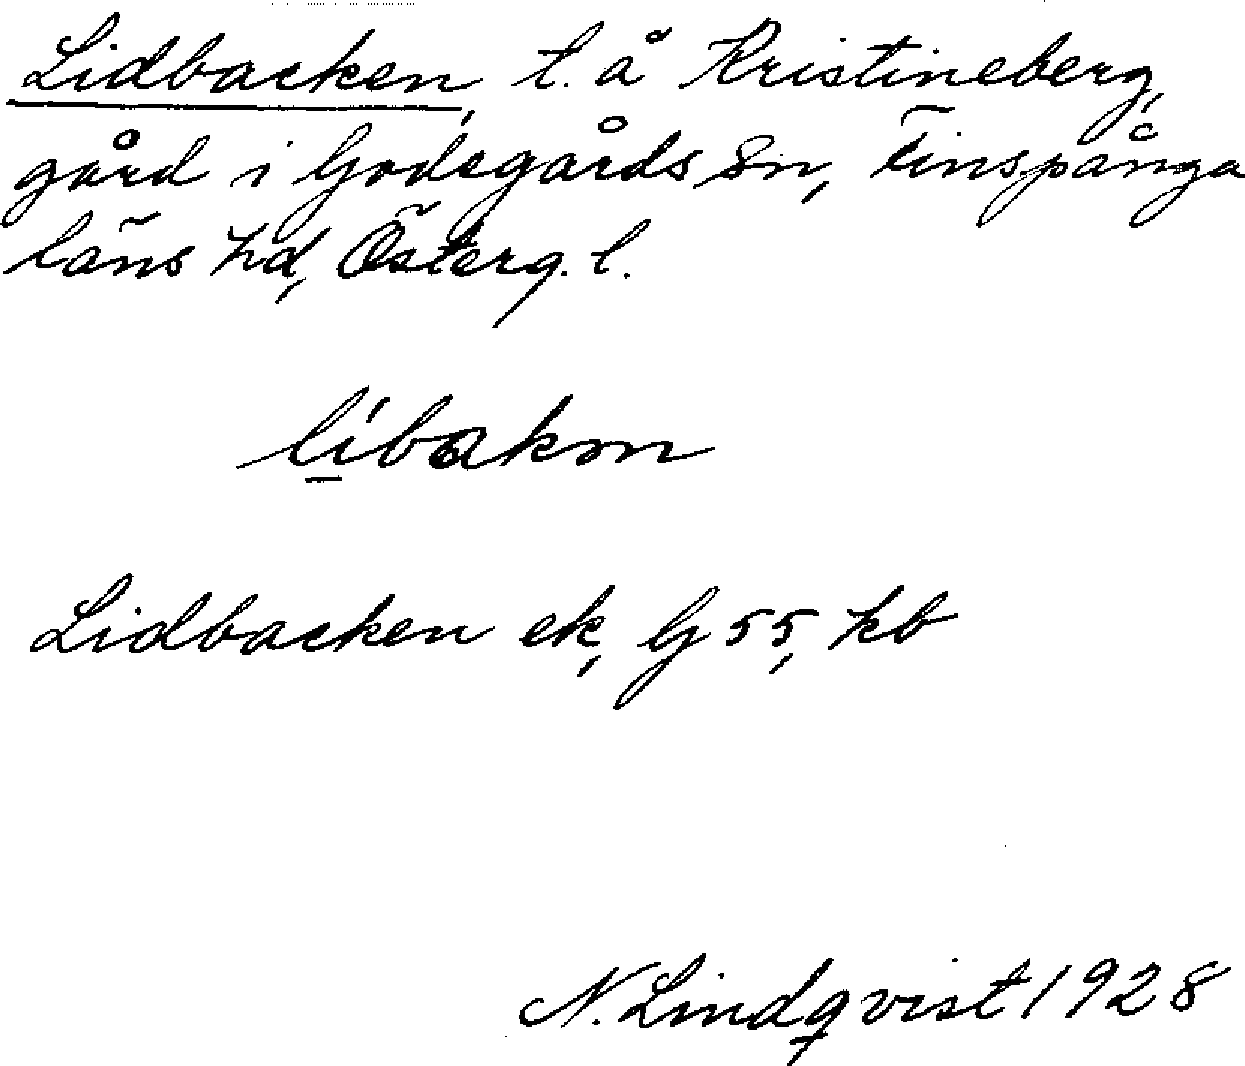 Lidbacken, t. å Kristineberg,
gård i Godegårds sn, Finspånga
läns hd, Österg. l.
lìbakən
Lidbacken ek, G 55, kb
N. Lindqvist 1928